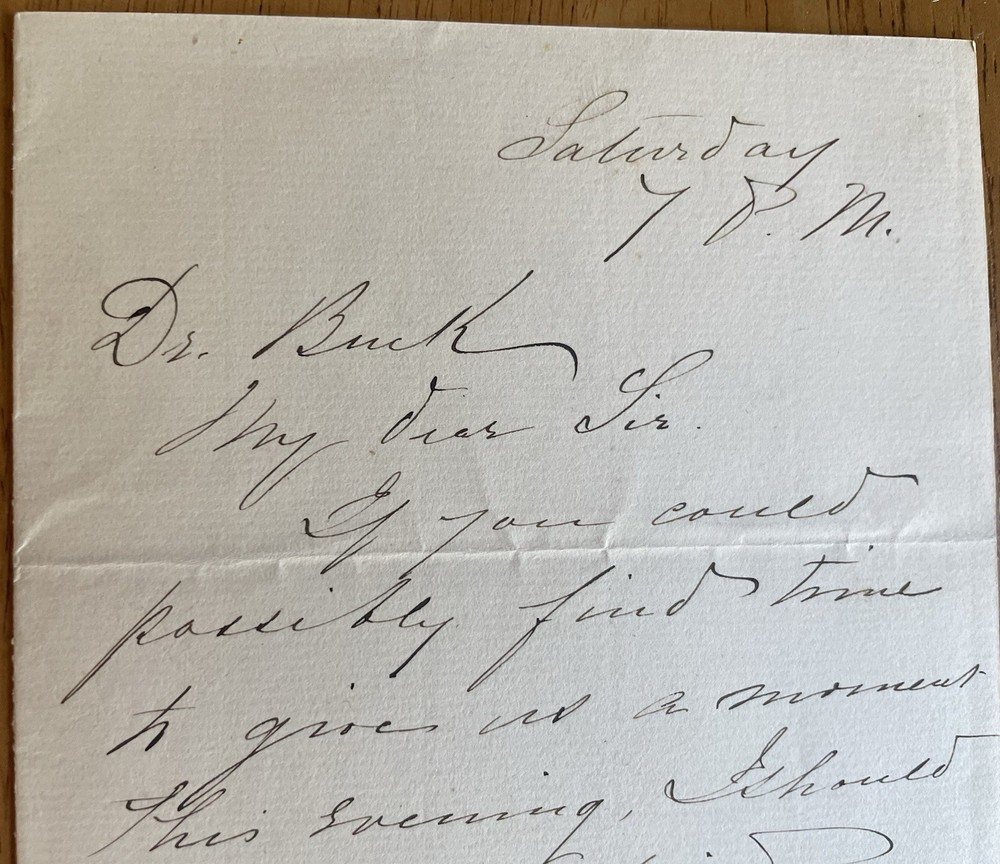 Saturday
7 P. M.
Dr. Buck
My dear Sir.
If you could
possibly find time
to give us a moment
this evening, I should